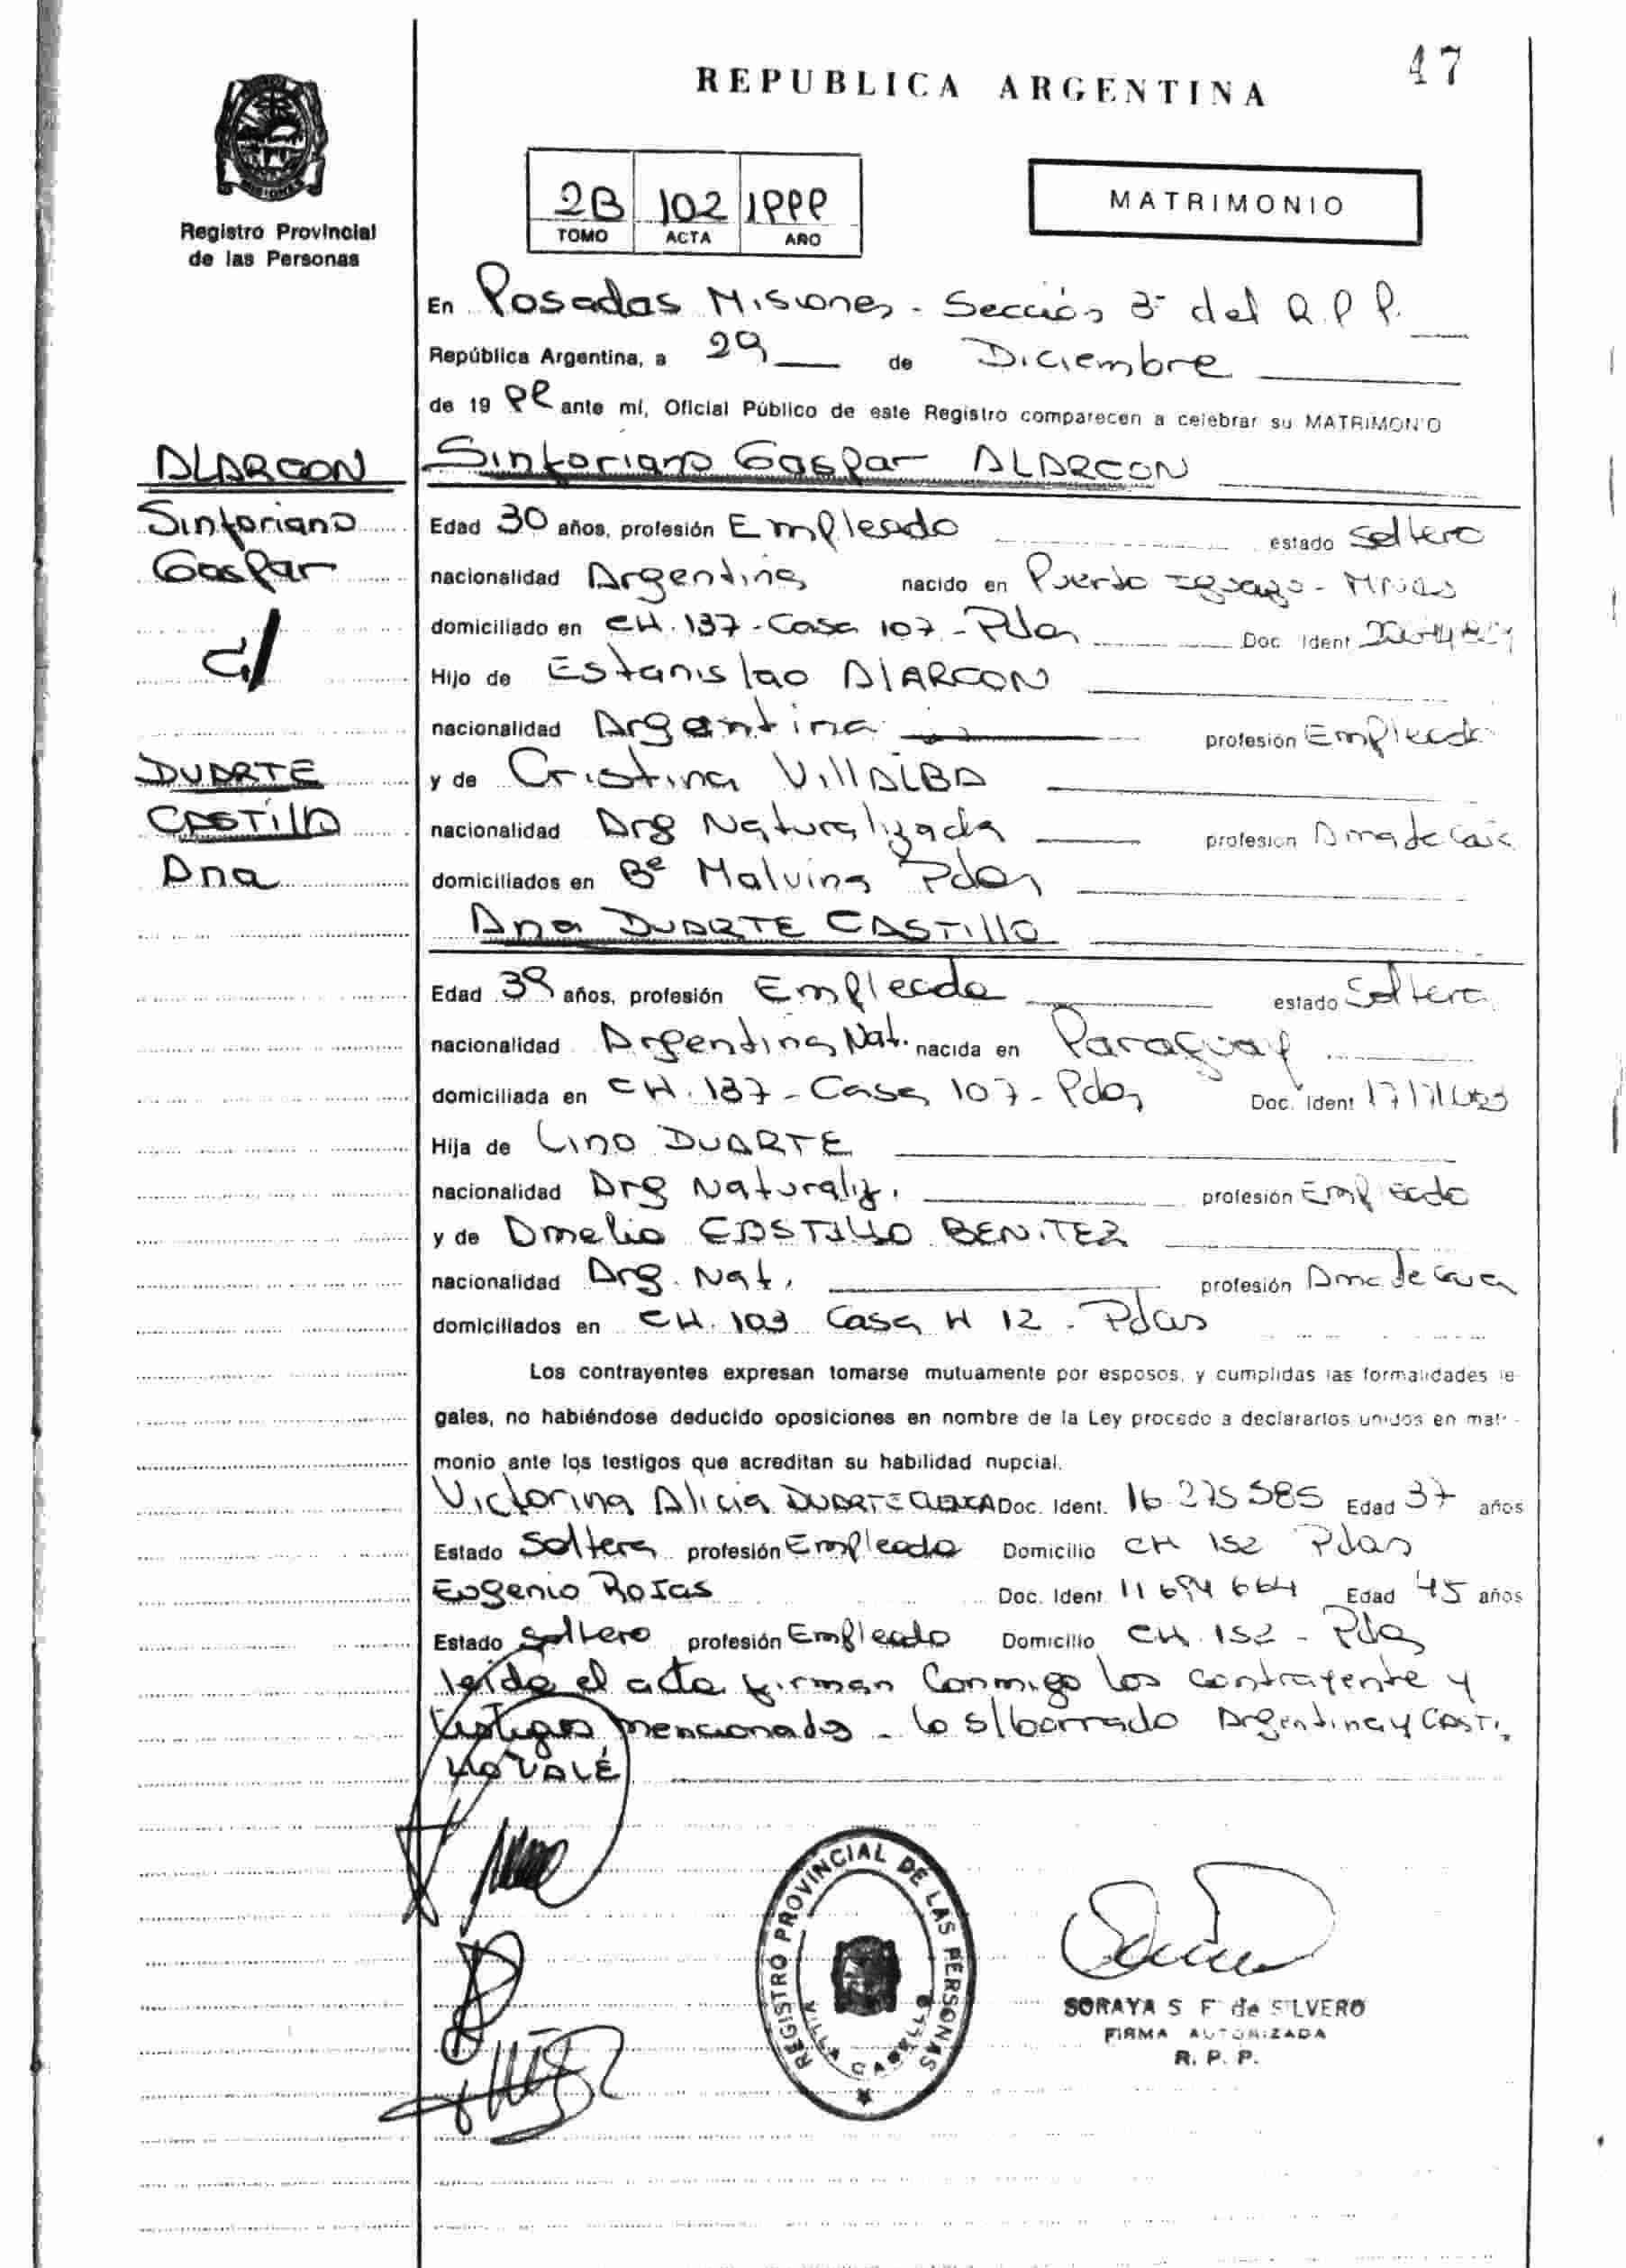 47
REPUBLICA ARGENTINA
MISIONES
Registro Provincial
de las Personas
2B 102 1999
TOMO ACTA AÑO
MATRIMONIO
En Posadas Misiones - Sección 3ª del R.P.P.
República Argentina, a 29 de Diciembre
de 19 99 ante mí, Oficial Público de este Registro comparecen a celebrar su MATRIMONIO
ALARCON
Sinforiano
Gaspar
c/
DUARTE
CASTILLO
Ana
Sinforiano Gaspar ALARCON
Edad 30 años, profesión Empleado estado Soltero
nacionalidad Argentina nacido en Puerto Iguazú - Mnes
domiciliado en CH. 137 - Casa 107 - Pdas Doc. Ident
Hijo de Estanislao ALARCON
nacionalidad Argentina profesión Empleado
y de Cristina VILLALBA
nacionalidad Arg Naturalizada profesión Ama de Casa
domiciliados en Bº Malvinas Pdas
Ana DUARTE CASTILLO
Edad 39 años, profesión Empleada estado Soltera
nacionalidad Argentina Nat. nacida en Paraguay
domiciliada en CH. 137 - Casa 107 - Pdas Doc. Ident
Hija de Lino DUARTE
nacionalidad Arg Naturaliz. profesión Empleado
y de Amelia CASTILLO BENITEZ
nacionalidad Arg. Nat. profesión Ama de Casa
domiciliados en CH. 103 Casa H 12 - Pdas
Los contrayentes expresan tomarse mutuamente por esposos, y cumplidas las formalidades le-
gales, no habiéndose deducido oposiciones en nombre de la Ley procedo a declararlos unidos en matri-
monio ante los testigos que acreditan su habilidad nupcial.
Victorina Alicia DUARTE Doc. Ident. 16.275585 Edad 37 años
Estado Soltera profesión Empleada Domicilio CH 152 Pdas
Eugenio Rojas Doc. Ident 11 694 664 Edad 45 años
Estado Soltero profesión Empleado Domicilio CH. 152 - Pdas
leída el acta firman conmigo los contrayente y
testigos mencionados - lo s/borrado Argentina y CASTI.
LLO VALE
REGISTRO PROVINCIAL DE LAS PERSONAS
VILLA CABELLO
SORAYA S F de SILVERO
FIRMA AUTORIZADA
R. P. P.